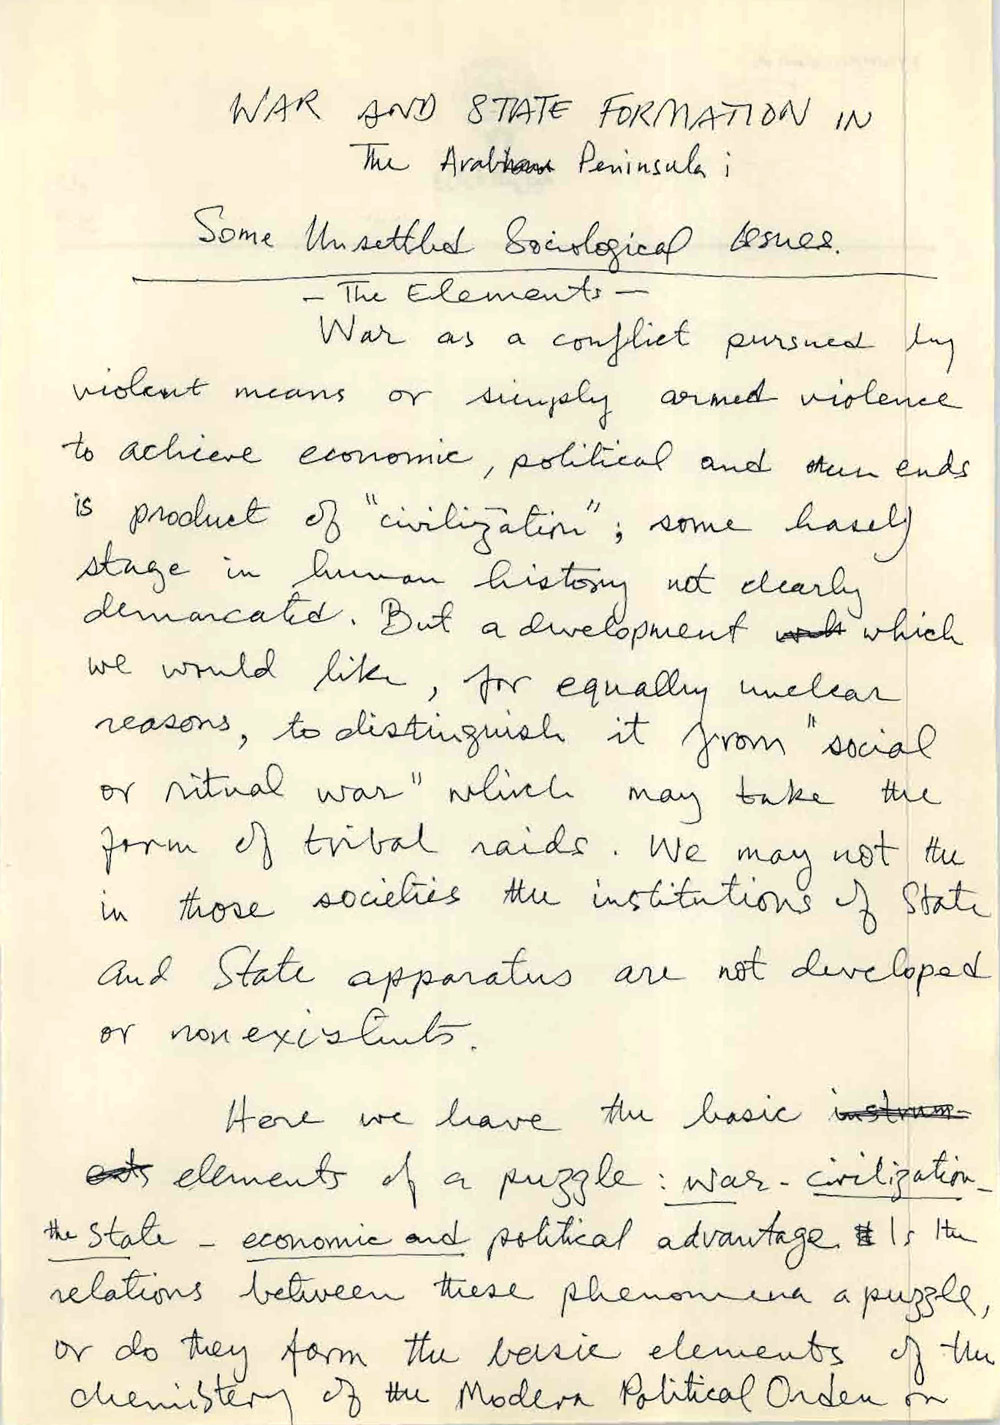 WAR AND STATE FORMATION IN
The Arab Peninsula ;
Some Unsettled Sociological Issues.
- The Elements -
War as a conflict pursued by
violent means or simply armed violence
to achieve economic, political and ends
is product of "civilization" ; some
stage in human history not clearly
demarcated. But a development which
we would like, for equally unclear
reasons, to distinguish it from "social
or ritual war" which may take the
form of tribal raids. We may not the
in those societies the institutions of State
and State apparatus are not developed
or nonexistents.
Here we have the basic instrum-
ents elements of a puzzle : war - civilization -
the State - economic and political advantage. Is the
relations between these phenomena a puzzle,
or do they form the basic elements of the
chemistery of the Modern Political Order or